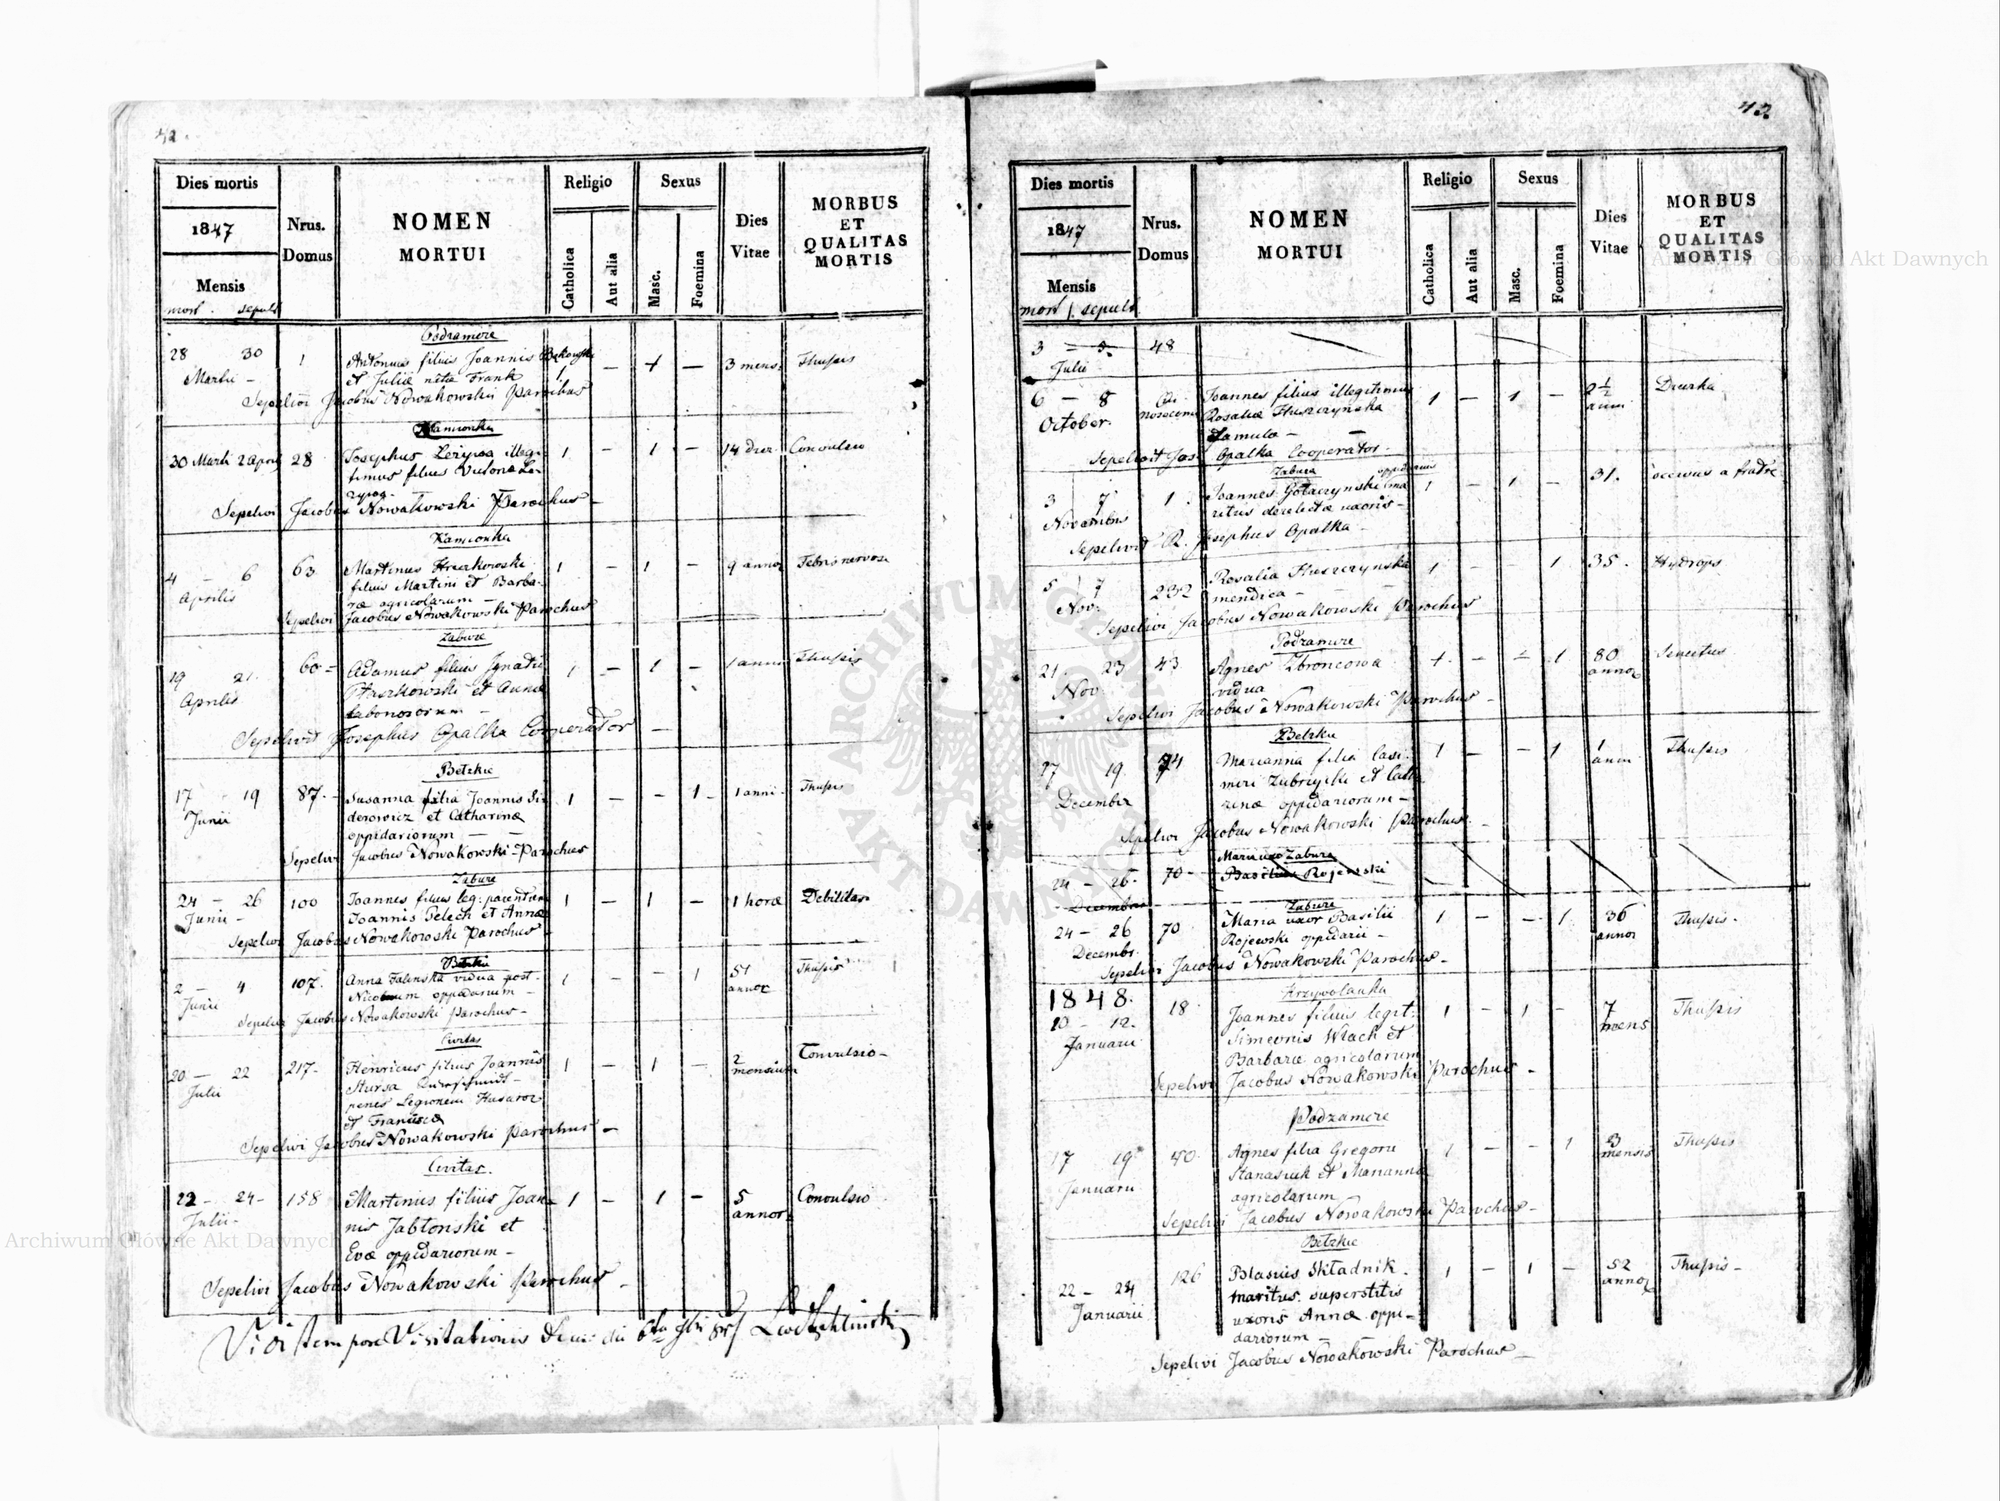 42.
Dies mortis
1847
Mensis
mort. sepult
Nrus. Domus
NOMEN MORTUI
Religio
Catholica
Aut alia
Sexus
Masc.
Foemina
Dies Vitae
MORBUS ET QUALITAS MORTIS
Podzamcze
28 30 1 Antonius filius Joannis 1 – 1 – 3 mens. Thussis
Martii – et Juliæ natæ Frank
Sepelivi Jacobus Nowakowski Parochus
Kamionka
30 Martii 2 April 28 Josephus illegi- 1 – 1 – 14 dier. Convulsio
timus filius
Sepelivi Jacobus Nowakowski Parochus –
Kamionka
4 – 6 63 Martinus 1 – 1 – 9 annor Febris nervosa
Aprilis filius Martini et Barba-
ræ agricolarum –
Sepelivi Jacobus Nowakowski Parochus
Zaburze
19 21. 60 Adamus filius Ignatii 1 – 1 – 1 anni Thussis
Aprilis Ptaszkowski et Annæ
laboriosorum –
Sepelivit Josephus Opalka Cooperator –
Betzkie
17 19 87. Susanna filia Joannis Si- 1 – – 1 – 1 anni – Thussis
Junii derowicz et Catharinæ
oppidariorum –
Sepelivi Jacobus Nowakowski – Parochus
Zaburze
24 – 26 100 Joannes filius leg: parentum 1 – 1 – 1 horæ Debilitas
Junii – Joannis Pelech et Annæ
Sepelivi Jacobus Nowakowski Parochus –
Betzkie
2 – 4 107. Anna Falinska vidua post 1 – – 1 51 annor Thussis
Junii oppidarium –
Sepelivi Jacobus Nowakowski Parochus –
Civitas
20 – 22 217. Henricus filius Joannis 1 – 1 – 2 mensium Convulsio –
Julii Stursa
penes Legionem Husaror
et Francisca
Sepelivi Jacobus Nowakowski Parochus –
Civitas.
22 – 24 – 158 Martinus filius Joan- 1 – 1 – 5 annor Convulsio
Julii – nis Jabłonski et
Evæ oppidariorum –
Sepelivi Jacobus Nowakowski Parochus –
Vidi tempore Visitationis
43.
Dies mortis
1847
Mensis
mort sepult
Nrus. Domus
NOMEN MORTUI
Religio
Catholica
Aut alia
Sexus
Masc.
Foemina
Dies Vitae
MORBUS ET QUALITAS MORTIS
3 – 5. 48
Julii
6 – 8 Joannes filius illegitimus 1 – 1 – 2 1/2 anni
October. Rosaliæ Huszczynska
famulæ –
Sepelivit Jos. Opalka Cooperator.
Zabura
3 7 1. Joannes Gołaczynski ma- 1 – 1 – 31. occisus a fratre
Novembris ritus derelictæ uxoris – oppidarius
Sepelivit R. Josephus Opalka –
5 7 232 Rosalia Huszczynska 1 – 1 35. Hydrops
Nov. mendica –
Sepelivi Jacobus Nowakowski Parochus
Podzamcze
21. 23 43. Agnes Zbroncowa 1 – – 1 80 annor Senectus
Nov vidua
Sepelivi Jacobus Nowakowski Parochus –
Betzkie
17 19. 74 Marianna filia Casi- 1 – – 1 1 anni Thussis
December miri Zubrzycki et Catha-
rinæ oppidariorum –
Sepelivi Jacobus Nowakowski Parochus.
Zabura
24 – 26 – 70 – Basilius Rojewski
Decembris
Zaburze
24 – 26 70 Maria uxor Basilii 1 – – 1. 36 annor Thussis –
Decembr. Rojewski oppidarii –
Sepelivi Jacobus Nowakowski Parochus –
1848. Krzywolanka
10 – 12. 18 Joannes filius legit: 1 – 1 – 7 mens Thussis
Januarii Simeonis Wlach et
Barbaræ agricolarum
Sepelivi Jacobus Nowakowski Parochus –
Podzamcze
17 19 40. Agnes filia Gregorii 1 – – 1 3 mensis Thussis
Januarii Stanasiuk et Marianna
agricolarum
Sepelivi Jacobus Nowakowski Parochus –
Betzkie
22 – 24 126 Blasius Składnik 1 – 1 – 52 annor Thussis –
Januarii maritus superstitis
uxoris Annæ oppi-
dariorum
Sepelivi Jacobus Nowakowski Parochus –
Archiwum Główne Akt Dawnych
Archiwum Główne Akt Dawnych
ARCHIWUM GŁÓWNE AKT DAWNYCH